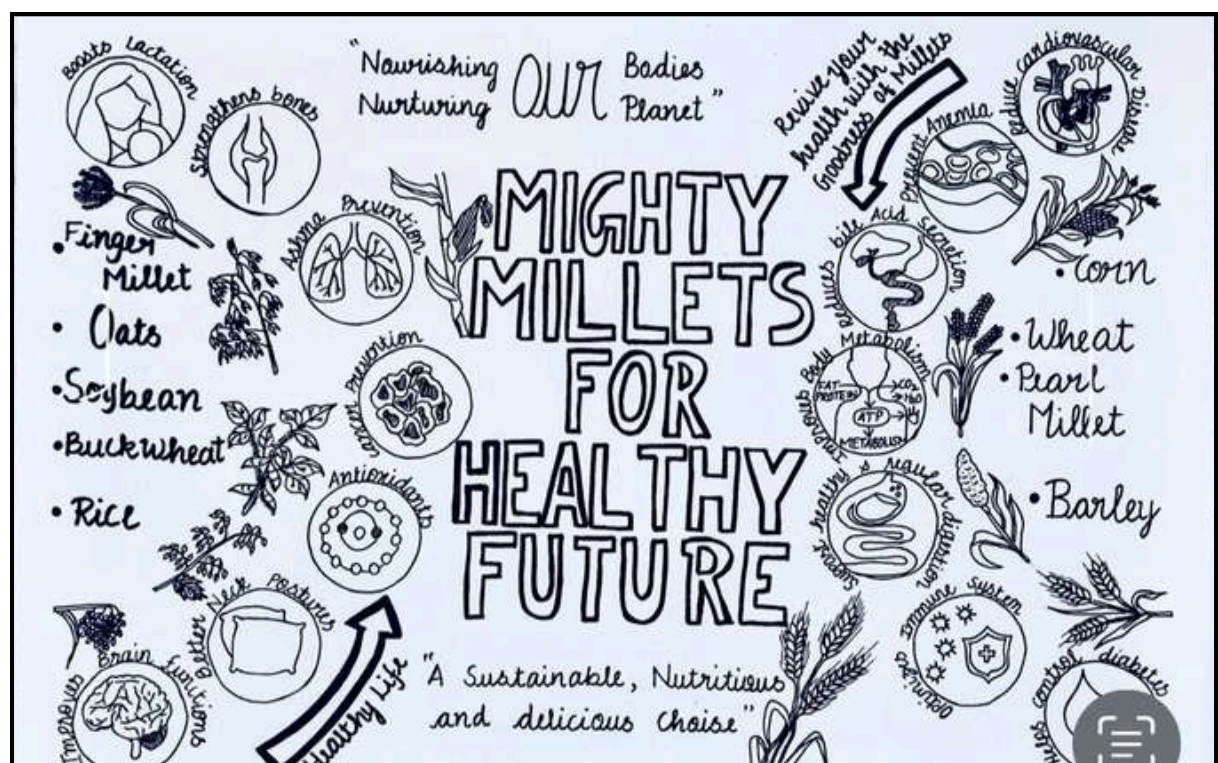 Boosts Lactation
Strengthens bones
"Nourishing OUR Bodies
Nurturing Planet"
Revive your
health with the
Goodness of Millets
Reduce Cardiovascular Disease
Prevent Anemia
Asthma Prevention
MIGHTY
MILLETS
FOR
HEALTHY
FUTURE
Reduces bile Acid Secretion
• Finger
Millet
• Oats
• Soybean
• Buckwheat
• Rice
• Corn
• Wheat
• Pearl
Millet
• Barley
Cancer Prevention
Improves Body Metabolism
FAT
PROTEIN
CO2
H2O
ATP
METABOLISM
Antioxidants
Support healthy & regular digestion
Better Neck Postures
Optimizes Immune System
Improves Brain Functions
Healthy Life
"A Sustainable, Nutritious
and delicious choise"
Helps control diabetes